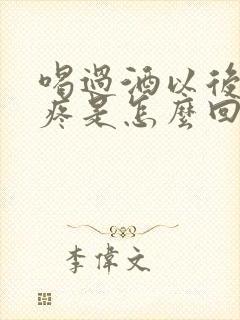 喝過酒以後
疼是怎麼回
李偉文